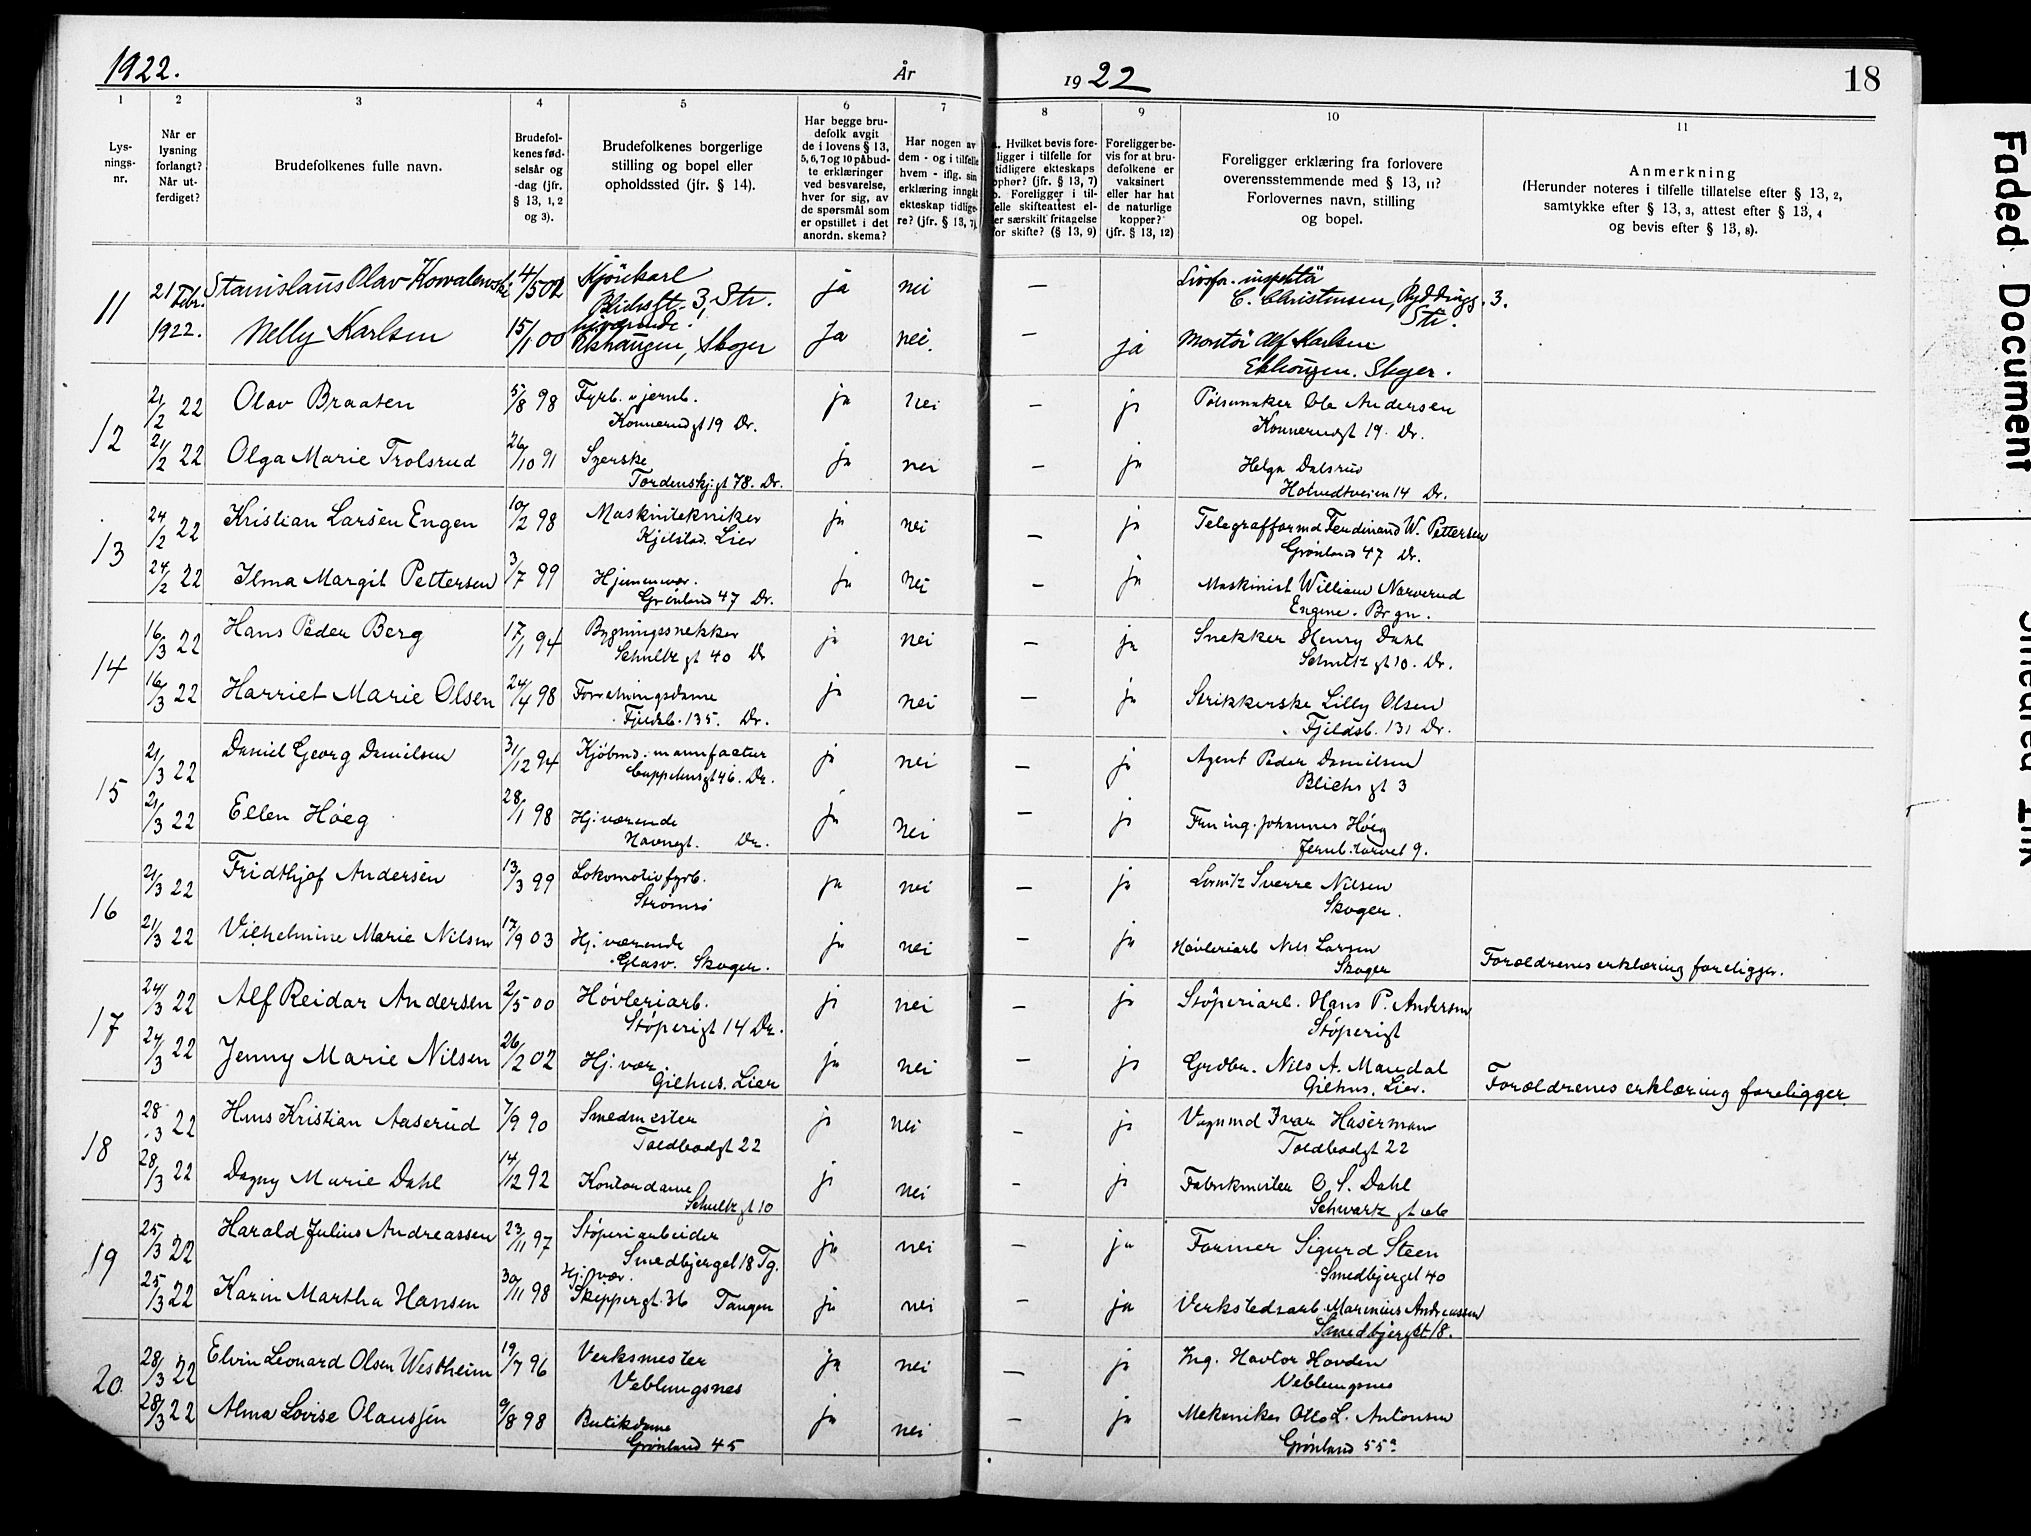 1922.
År
1922
18
1
2
3
4
5
6
7
8
9
10
11
Lys-
nings-
nr.
Når er
lysning
forlangt?
Når ut-
ferdiget?
Brudefolkenes fulle navn.
Brudefol-
kenes fød-
selsår og
-dag (jfr.
§ 13, 1, 2
og 3).
Brudefolkenes borgerlige
stilling og bopel eller
opholdssted (jfr. § 14).
Har begge bru-
defolk avgit
de i lovens § 13,
5, 6, 7 og 10 påbud-
te erklæringer
ved besvarelse,
hver for sig, av
de spørsmål som
er opstillet i det
anordn. skema?
Har nogen av
dem - og i tilfelle
hvem - iflg. sin
erklæring inngått
ekteskap tidlige-
re? (jfr. § 13, 7).
a. Hvilket bevis fore-
ligger i tilfelle for
tidligere ekteskaps
ophør? (jfr. § 13, 7)
b. Foreligger i til-
felle skifteattest el-
ler særskilt fritagelse
for skifte? (§ 13, 9)
Foreligger be-
vis for at bru-
defolkene er
vaksinert
eller har hat
de naturlige
kopper?
(jfr. § 13, 12)
Foreligger erklæring fra forlovere
overensstemmende med § 13, 11?
Forlovernes navn, stilling
og bopel.
Anmerkning
(Herunder noteres i tilfelle tillatelse efter § 13, 2,
samtykke efter § 13, 3, attest efter § 13, 4
og bevis efter § 13, 8).
11 21 Febr. Stanislaus Olav Kowalewski 4/5 02 ja nei —
C. Christensen, 3.
Str.
1922. Nelly Karlsen 15/1 00 Skoger ja nei. — ja Montör Alf Karlsen
Skoger.
12 21/2 22 Olav Braaten 5/8 98 Fyrb. v jernb. ja nei — ja Pölsemaker Ole Andersen
Konnerudgt 19 Dr. Konnerudgt 19. Dr.
21/2 22 Olga Marie Trolsrud 26/10 91 Syerske ja nei — ja Helga Dalsrud
Tordenskj.gt 78. Dr. Hotvedtveien 14 Dr.
13 24/2 22 Kristian Larsen Engen 10/2 98 Maskintekniker ja nei — ja Telegrafformd Ferdinand W. Pettersen
Kjelstad. Lier Grönland 47 Dr.
24/2 22 Ilma Margit Pettersen 3/7 99 Hjemmevær. ja nei — ja Maskinist William Narverud
Grönland 47 Dr. Engene. Br gn.
14 16/3 22 Hans Peder Berg 17/1 94 Bygningssnekker ja nei — ja Snekker Henry Dahl
Schultz gt 40 Dr Schultz gt 10. Dr.
16/3 22 Harriet Marie Olsen 24/4 98 Forretningsdame ja nei — ja Strikkerske Lilly Olsen
Fjeldsb. 135. Dr. Fjeldsb. 131 Dr.
15 21/3 22 Daniel Georg Danielsen 31/12 94 Kjöbmd. manufactur ja nei — ja Agent Peder Danielsen
Cappelensgt 46. Dr. Blichs gt 3
21/3 22 Ellen Höeg 28/1 98 Hj. værende ja nei — ja Fru ing. Johannes Höeg
Havnegt. Dr. Jernb. torvet 9.
16 21/3 22 Fridthjof Andersen 13/3 99 Lokomotiv fyrb. ja nei — ja Sverre Nilsen
Strömsö Skoger.
21/3 22 Vilhelmine Marie Nilsen 17/9 03 Hj. værende ja nei — ja Hövleriarb Nils Larsen
Glasv. Skoger. Skoger Forældrenes erklæring foreligger.
17 24/3 22 Alf Reidar Andersen 2/5 00 Hövleriarb. ja nei — ja Stöperiarb. Hans P. Andersen
Stöperigt 14 Dr. Stöperigt
24/3 22 Jenny Marie Nilsen 26/2 02 Hj. vær ja nei — ja Grdbr. Nils A. Mardal
Gilhus. Lier Gilhus. Lier. Forældrenes erklæring foreligger.
18 28/3 22 Hans Kristian Aaserud 7/9 90 Smedmester ja nei — ja Vognmd Ivar Haserman
Toldbodgt 22 Toldbodgt 22
28/3 22 Dagny Marie Dahl 14/12 92 Kontordame ja nei — ja Fabrikmester O. S. Dahl
Schultz gt 10 Schwartz gt
19 25/3 22 Harald Julius Andreassen 23/11 97 Stöperiarbeider ja nei — ja Former Sigurd Steen
Smedbjerget 18 Tg. Smedbjerget 40
25/3 22 Karin Martha Hansen 30/11 98 Hj. vær. ja nei — ja Verkstedsarb. Marinius Andreassen
Skippergt. 36 Tangen Smedbjerget 18.
20 28/3 22 Elvin Leonard Olsen Westheim 19/7 96 Verksmester ja nei — ja Ing. Havtor Hovden
Veblungsnes Veblungsnes
28/3 22 Alma Lovise Olaussen 9/8 98 Butikdame ja nei — ja Mekaniker Otto L. Antonsen
Grönland 45 Grönland 55a
Faded Document
Smeared Ink